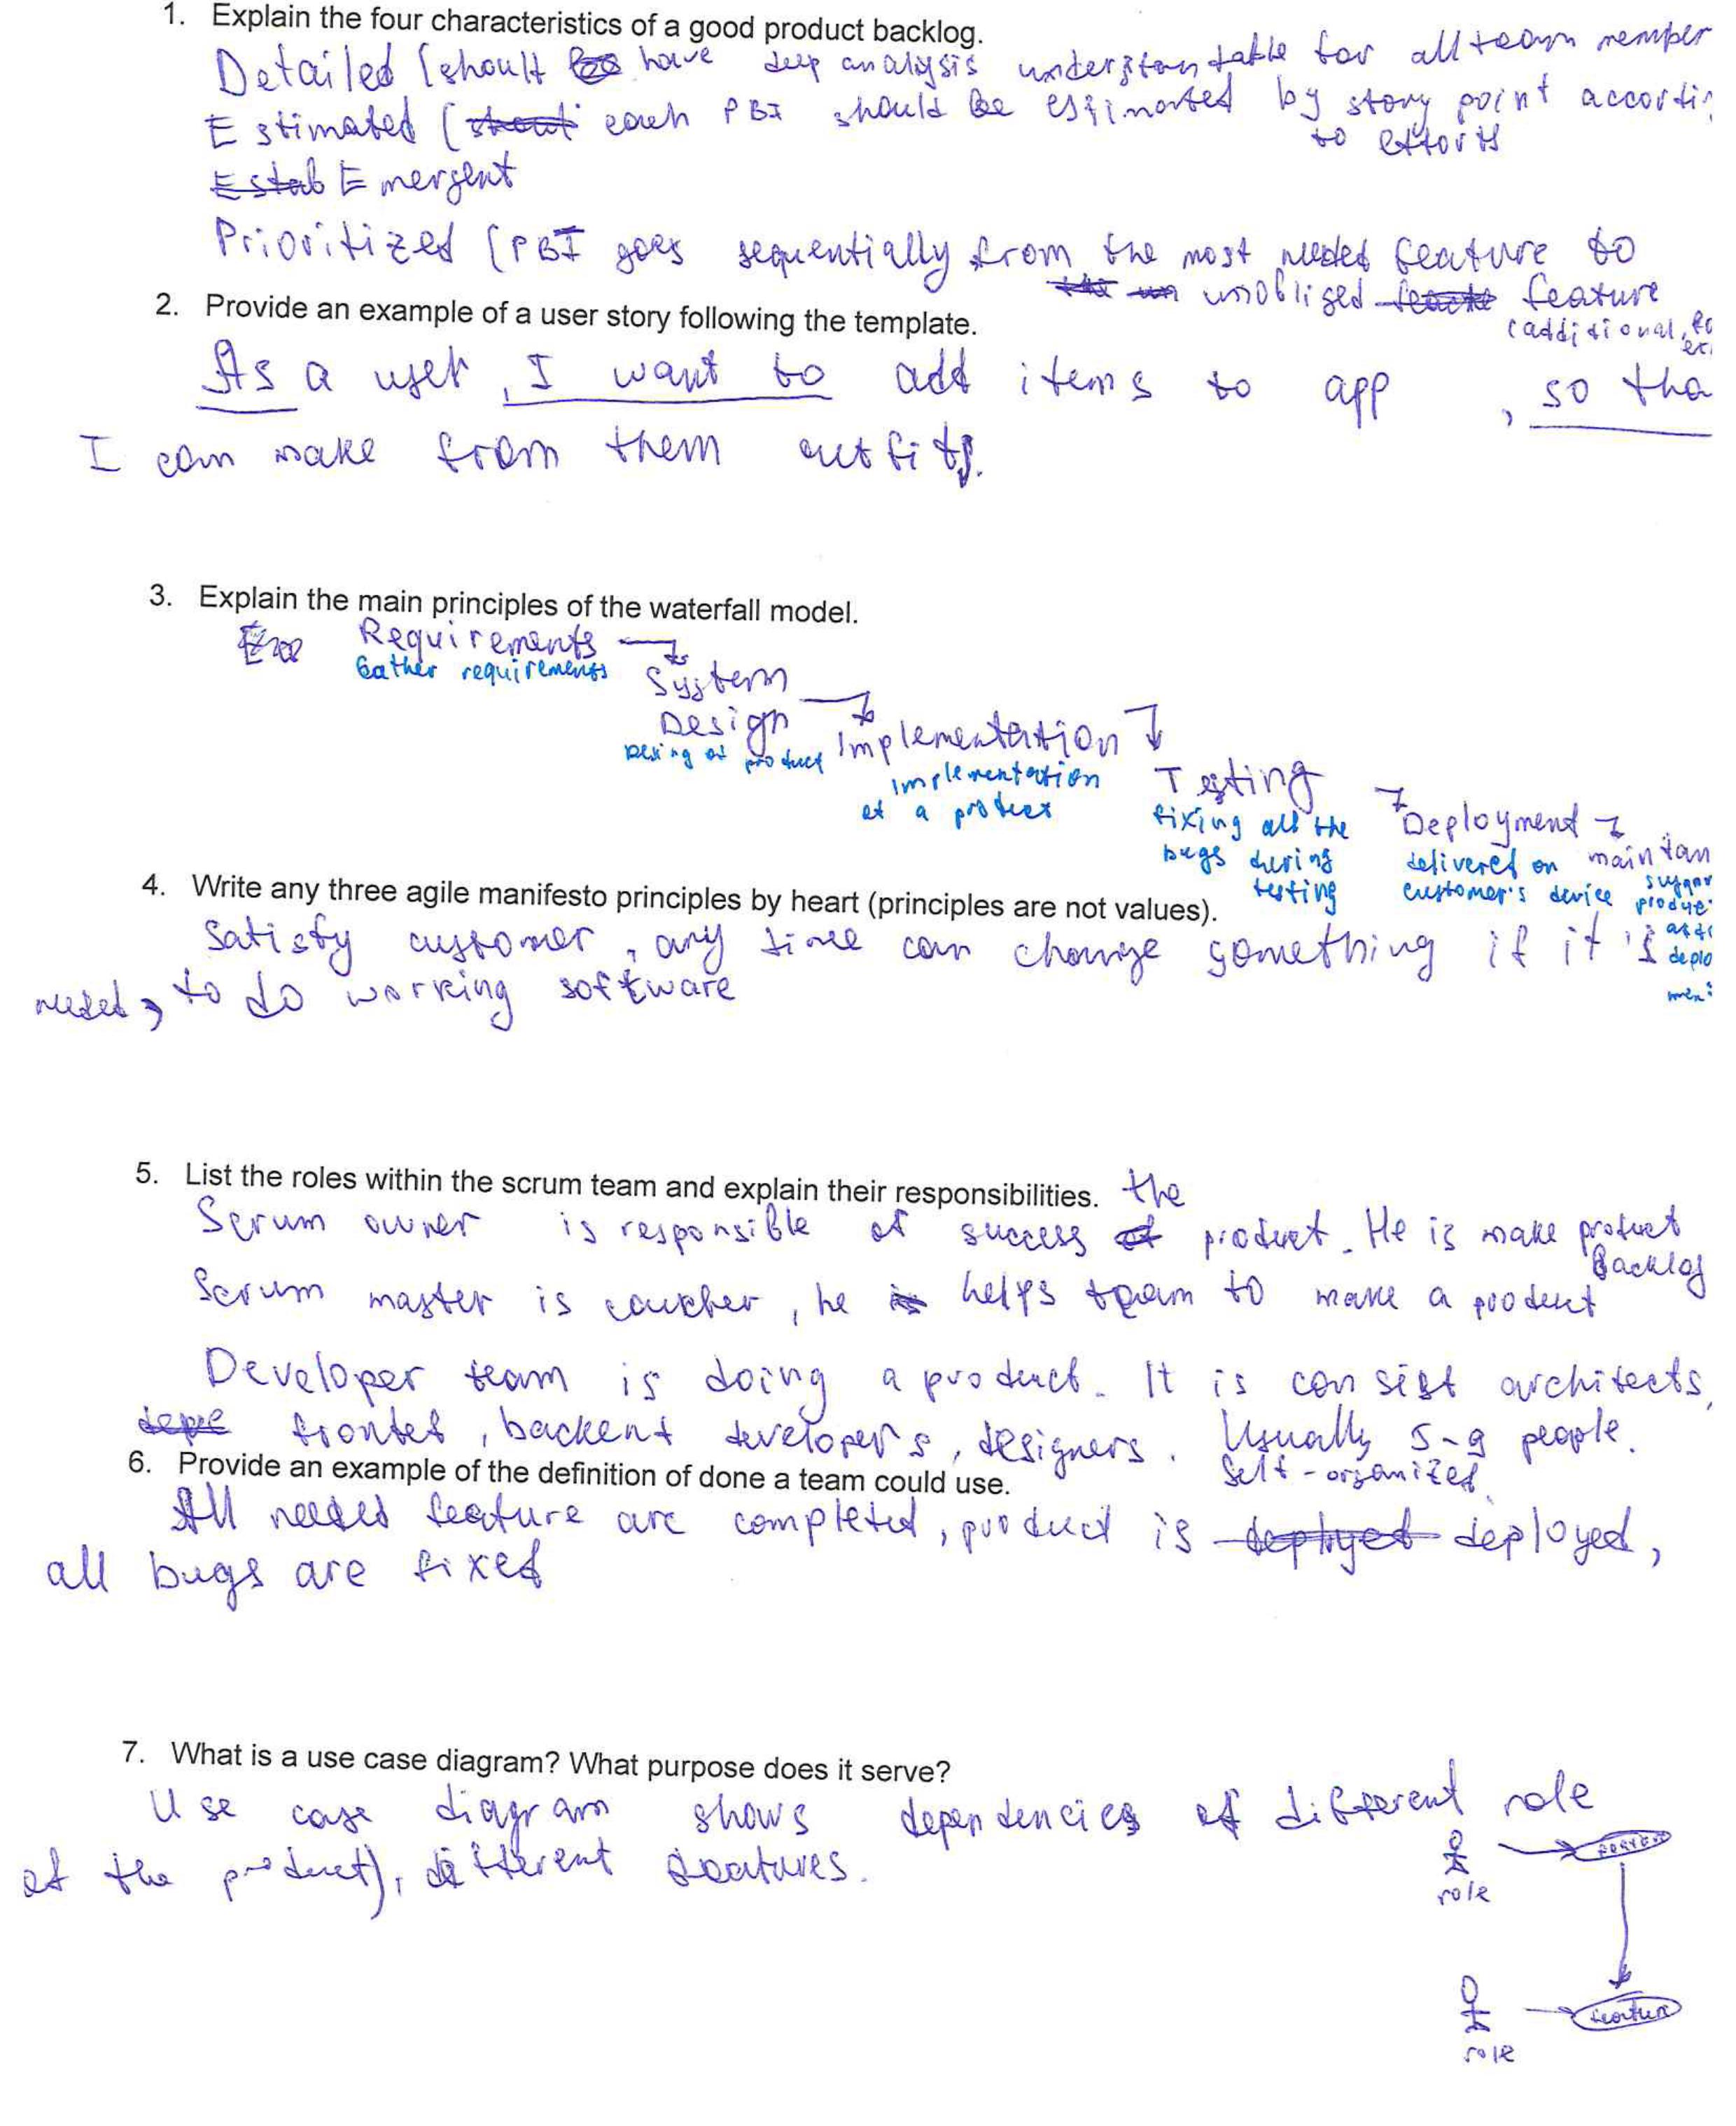 1. Explain the four characteristics of a good product backlog.
Detailed (shoult have deep analysis understantable for all team memper
Estimated (each PBI should be estimated by story point accordin
to efforts
Emergent
Prioritized (PBI goes sequentially from the most needed feature to
unobliged feature
(additional,
2. Provide an example of a user story following the template.
As a user, I want to add items to app, so tha
I can make from them outfits.
3. Explain the main principles of the waterfall model.
Requirements
Gather requirements
System
Design
Desing of product
Implementation
implementation
of a product
Testing
fixing all the
bugs during
testing
Deployment
delivered on
customer's device
maintan
4. Write any three agile manifesto principles by heart (principles are not values).
Satisfy customer, any time can change something if it's
needed, to do working software
5. List the roles within the scrum team and explain their responsibilities.
Scrum owner is responsible of the success product. He is make product
Backlog
Scrum master is coucher, he helps team to make a product
Developer team is doing a product. It is consist architects,
fronted, backent developers, designers. Usually 5-9 people.
Self-organized.
6. Provide an example of the definition of done a team could use.
All needed feature are completed, product is deployed,
all bugs are fixed
7. What is a use case diagram? What purpose does it serve?
Use case diagram shows dependencies of different role
of the product), different features.
role
role